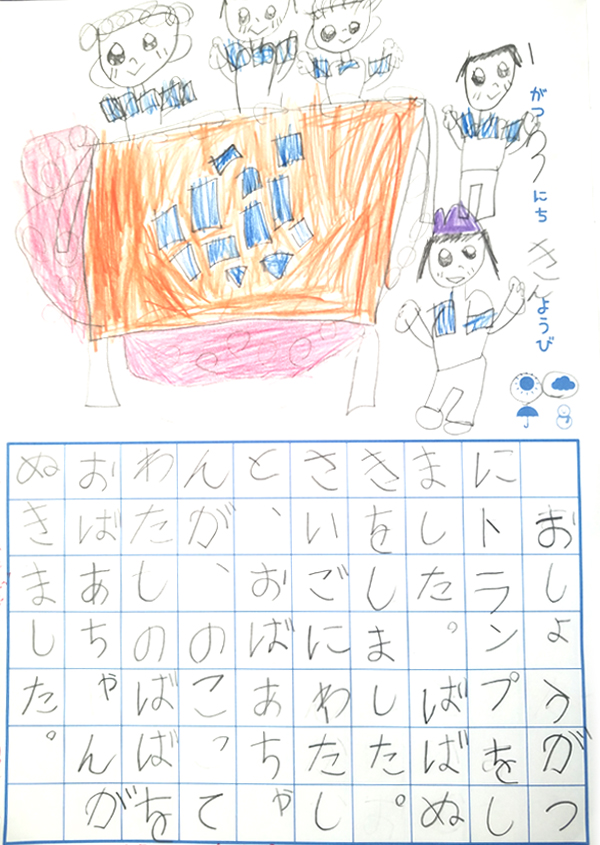 1がつ にち きんようび
おしょうがつ
にトランプをし
ました。ばばぬ
きをしました。
さいごにわたし
と、おばあちゃ
んが、のこって
わたしのばばを
おばあちゃんが
ぬきました。